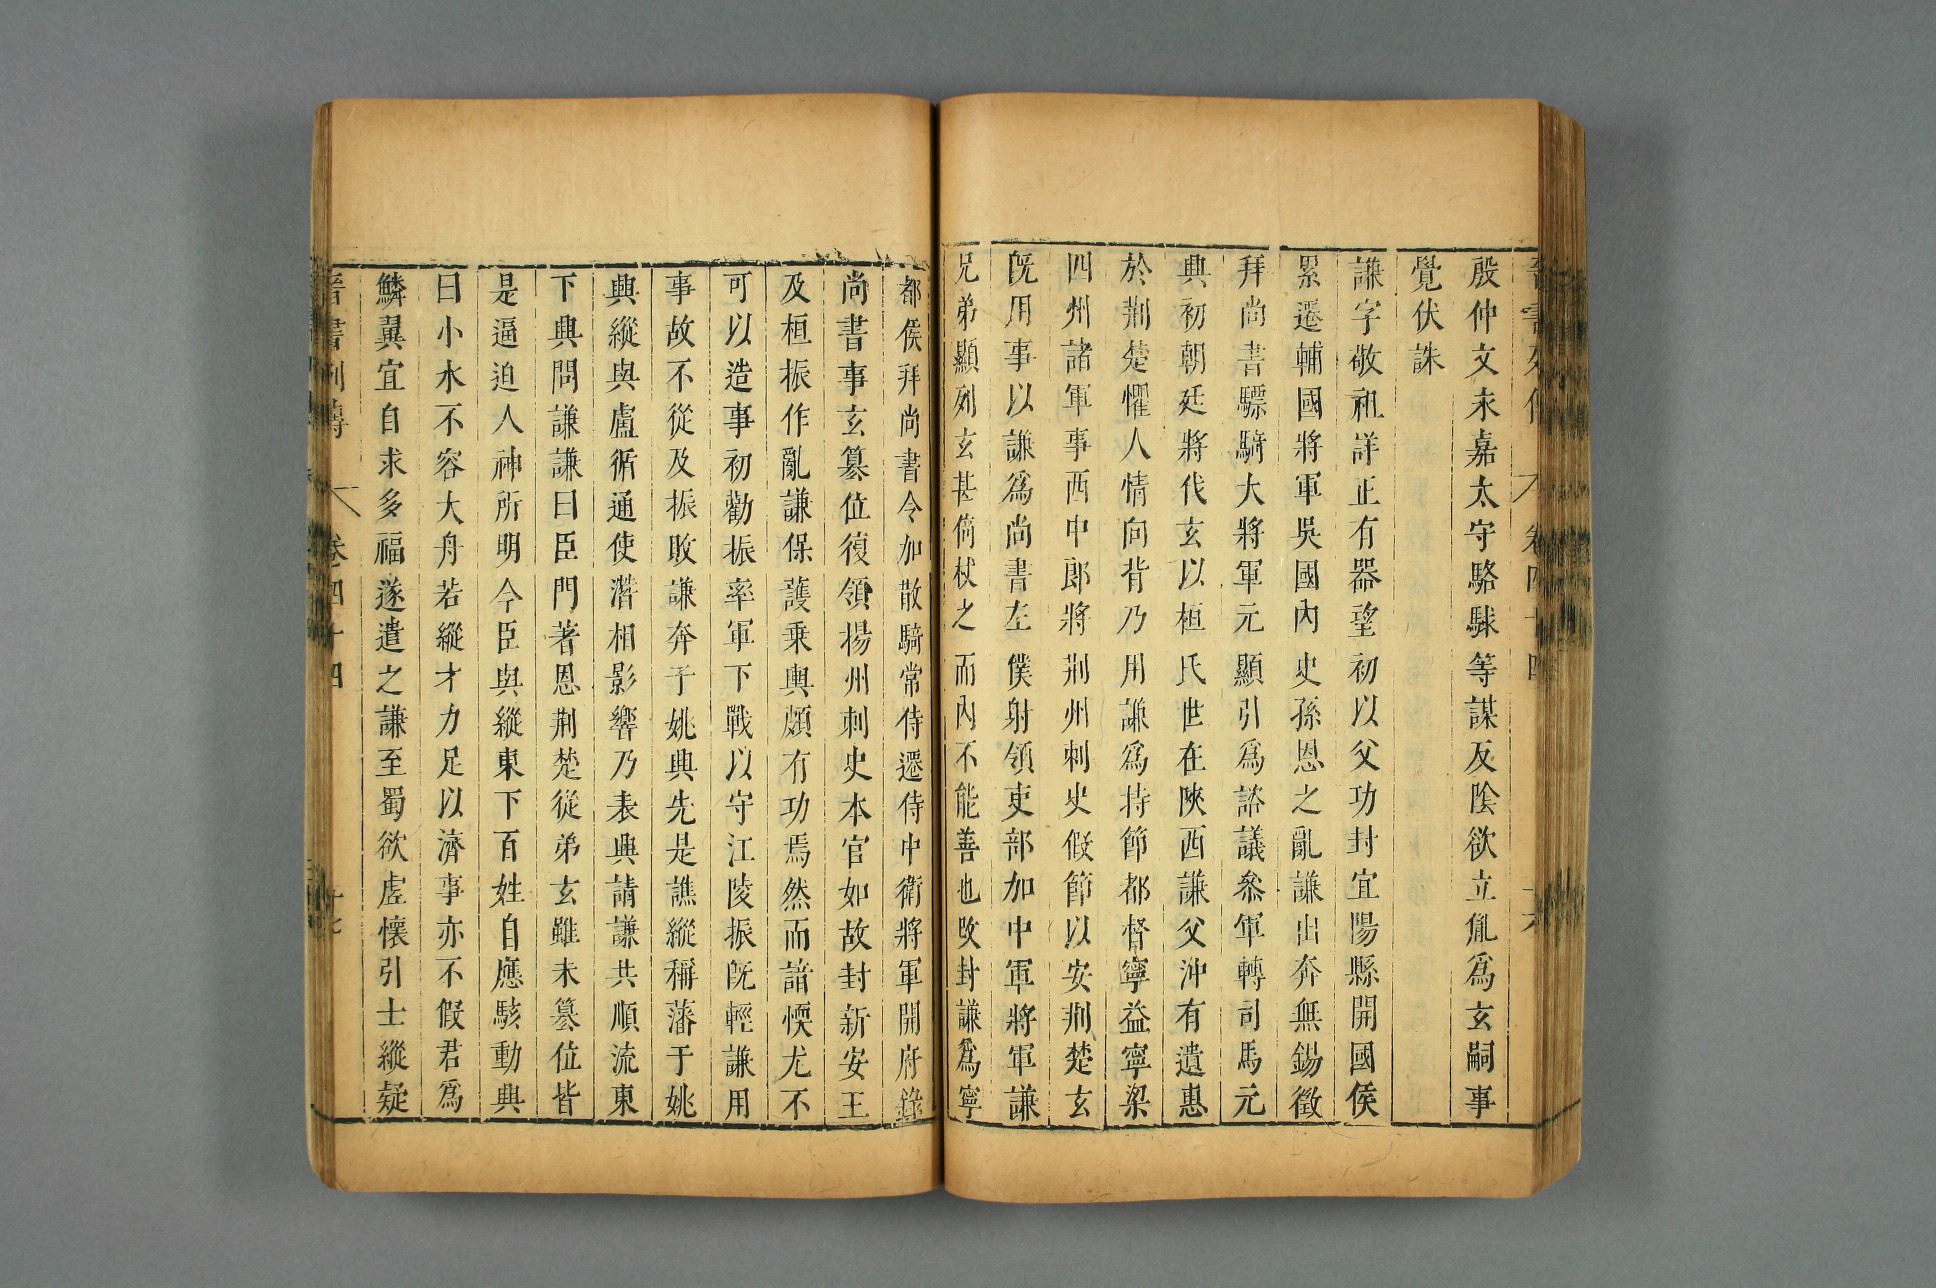 晉書列傳 卷四十四 十六
殷仲文永嘉太守駱駷等謀反陰欲立胤爲玄嗣事
覺伏誅
謙字敬祖詳正有器望初以父功封宜陽縣開國侯
累遷輔國將軍吳國內史孫恩之亂謙出奔無錫徵
拜尚書驃騎大將軍元顯引爲諮議參軍轉司馬元
興初朝廷將伐玄以桓氏世在陝西謙父沖有遺惠
於荆楚懼人情向背乃用謙爲持節都督寧益寧梁
四州諸軍事西中郎將荆州刺史假節以安荆楚玄
旣用事以謙爲尚書左僕射領吏部加中軍將軍謙
兄弟顯列玄甚倚杖之而內不能善也改封謙爲寧
都侯拜尚書令加散騎常侍遷侍中衛將軍開府錄
尚書事玄篡位復領揚州刺史本官如故封新安王
及桓振作亂謙保護乘輿頗有功焉然而諳懊尤不
可以造事初勸振率軍下戰以守江陵振旣輕謙用
事故不從及振敗謙奔于姚興先是譙縱稱藩于姚
興縱與盧循通使潛相影響乃表興請謙共順流東
下興問謙謙曰臣門著恩荆楚從弟玄雖未篡位皆
是逼迫人神所明今臣與縱東下百姓自應駭動興
曰小水不容大舟若縱才力足以濟事亦不假君爲
鱗翼宜自求多福遂遣之謙至蜀欲虛懷引士縱疑
晉書列傳 卷四十四 十七